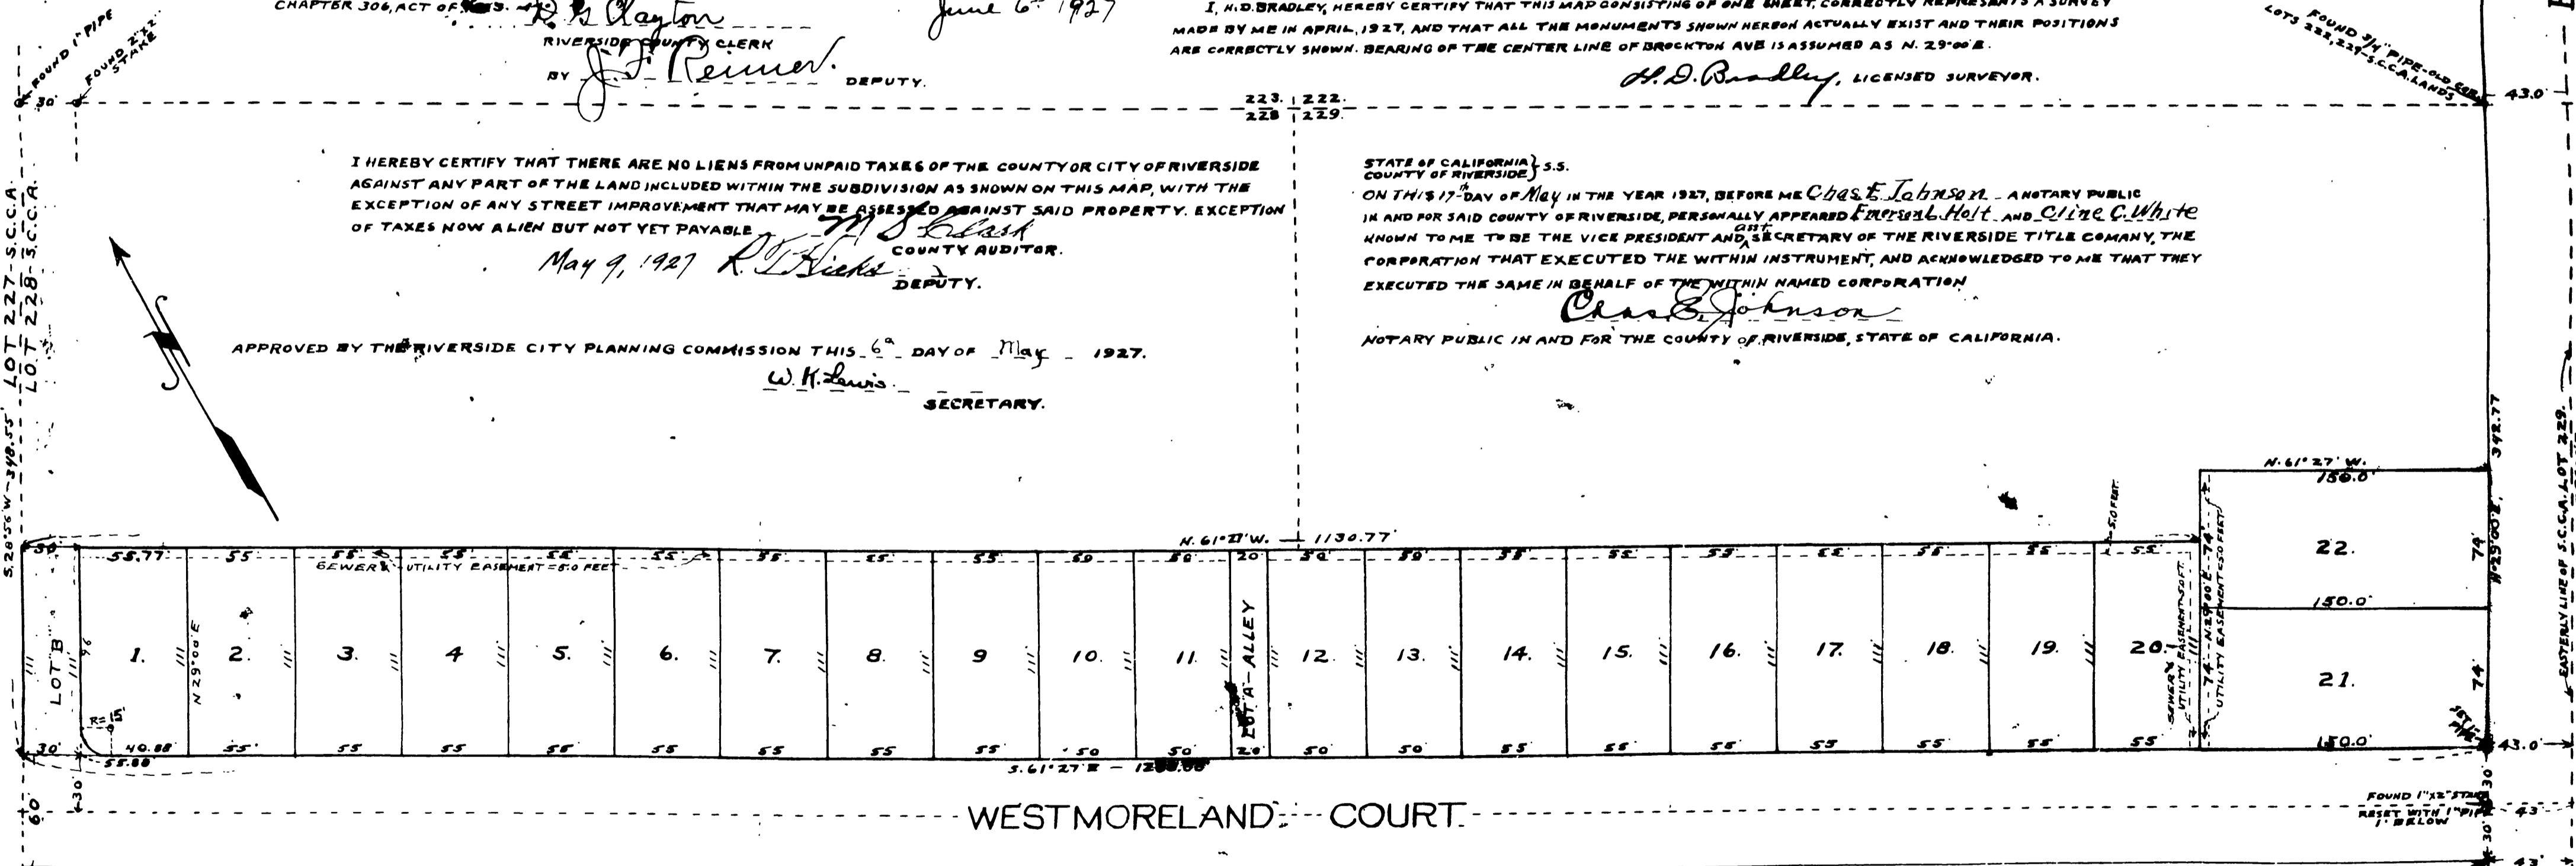 CHAPTER 306, ACT OF
D G Clayton
June 6th 1927
RIVERSIDE COUNTY CLERK
BY J. F. Reimer. DEPUTY.
I, H.D. BRADLEY, HEREBY CERTIFY THAT THIS MAP CONSISTING OF ONE SHEET, CORRECTLY REPRESENTS A SURVEY
MADE BY ME IN APRIL, 1927, AND THAT ALL THE MONUMENTS SHOWN HEREON ACTUALLY EXIST AND THEIR POSITIONS
ARE CORRECTLY SHOWN. BEARING OF THE CENTER LINE OF BROCKTON AVE IS ASSUMED AS N. 29°00' E.
H. D. Bradley, LICENSED SURVEYOR.
FOUND 1" PIPE
FOUND 2"X2"
STAKE
30'
FOUND 3/4" PIPE-OLD COR.
LOTS 222, 229-S.C.C.A. LANDS
43.0'
223. 222.
228 229.
I HEREBY CERTIFY THAT THERE ARE NO LIENS FROM UNPAID TAXES OF THE COUNTY OR CITY OF RIVERSIDE
AGAINST ANY PART OF THE LAND INCLUDED WITHIN THE SUBDIVISION AS SHOWN ON THIS MAP, WITH THE
EXCEPTION OF ANY STREET IMPROVEMENT THAT MAY BE ASSESSED AGAINST SAID PROPERTY. EXCEPTION
OF TAXES NOW A LIEN BUT NOT YET PAYABLE
M S Clash
COUNTY AUDITOR.
May 9, 1927 R. T. Hicks
DEPUTY.
APPROVED BY THE RIVERSIDE CITY PLANNING COMMISSION THIS 6th DAY OF May 1927.
W. K. Lewis
SECRETARY.
STATE OF CALIFORNIA } S.S.
COUNTY OF RIVERSIDE
ON THIS 17th DAY OF May IN THE YEAR 1927, BEFORE ME Chas E. Johnson - A NOTARY PUBLIC
IN AND FOR SAID COUNTY OF RIVERSIDE, PERSONALLY APPEARED Emerson L Holt AND Cline C. White
KNOWN TO ME TO BE THE VICE PRESIDENT AND asst SECRETARY OF THE RIVERSIDE TITLE COMANY, THE
CORPORATION THAT EXECUTED THE WITHIN INSTRUMENT, AND ACKNOWLEDGED TO ME THAT THEY
EXECUTED THE SAME IN BEHALF OF THE WITHIN NAMED CORPORATION
Chas. E. Johnson
NOTARY PUBLIC IN AND FOR THE COUNTY OF RIVERSIDE, STATE OF CALIFORNIA.
LOT 227-S.C.C.A.
LOT 228-S.C.C.A.
S. 28°56' W-348.55'
EASTERLY LINE OF S.C.C.A. LOT 229.
342.77
N. 61°27' W.
150.0'
22.
74'
N-29°00' E.
150.0'
21.
74'
150.0'
74-N.29°00'E-74'
UTILITY EASEMENT=5.0 FEET
5.0 FEET.
N. 61°27' W. 1130.77'
30' 55.77' 55 55 55 55 55 55 55 55 50 50 20 50 50 55 55 55 55 55 55 55
SEWER & UTILITY EASEMENT=5.0 FEET
LOT "B" 1. 2. 3. 4 5. 6. 7. 8. 9 10. 11. LOT "A"-ALLEY 12. 13. 14. 15. 16. 17. 18. 19. 20.
111' 111' 96 111' N 29°00' E 111' 111' 111' 111' 111' 111' 111' 111' 111' 111' 111' 111' 111' 111' 111' 111' 111' 111' 111'
SEWER &
UTILITY EASEMENT 5.0 FT.
R=15'
30' 40.88' 55' 55 55 55 55 55 55 55' 50 50' 20' 50' 50' 55 55 55 55 55' 55' 55
55.88'
S. 61°27' E
SET 1"
PIPE
43.0'
30'
60'
30
WESTMORELAND COURT.
FOUND 1"X2" STAKE
RESET WITH 1" PIPE
1' BELOW
43'
30'
43'